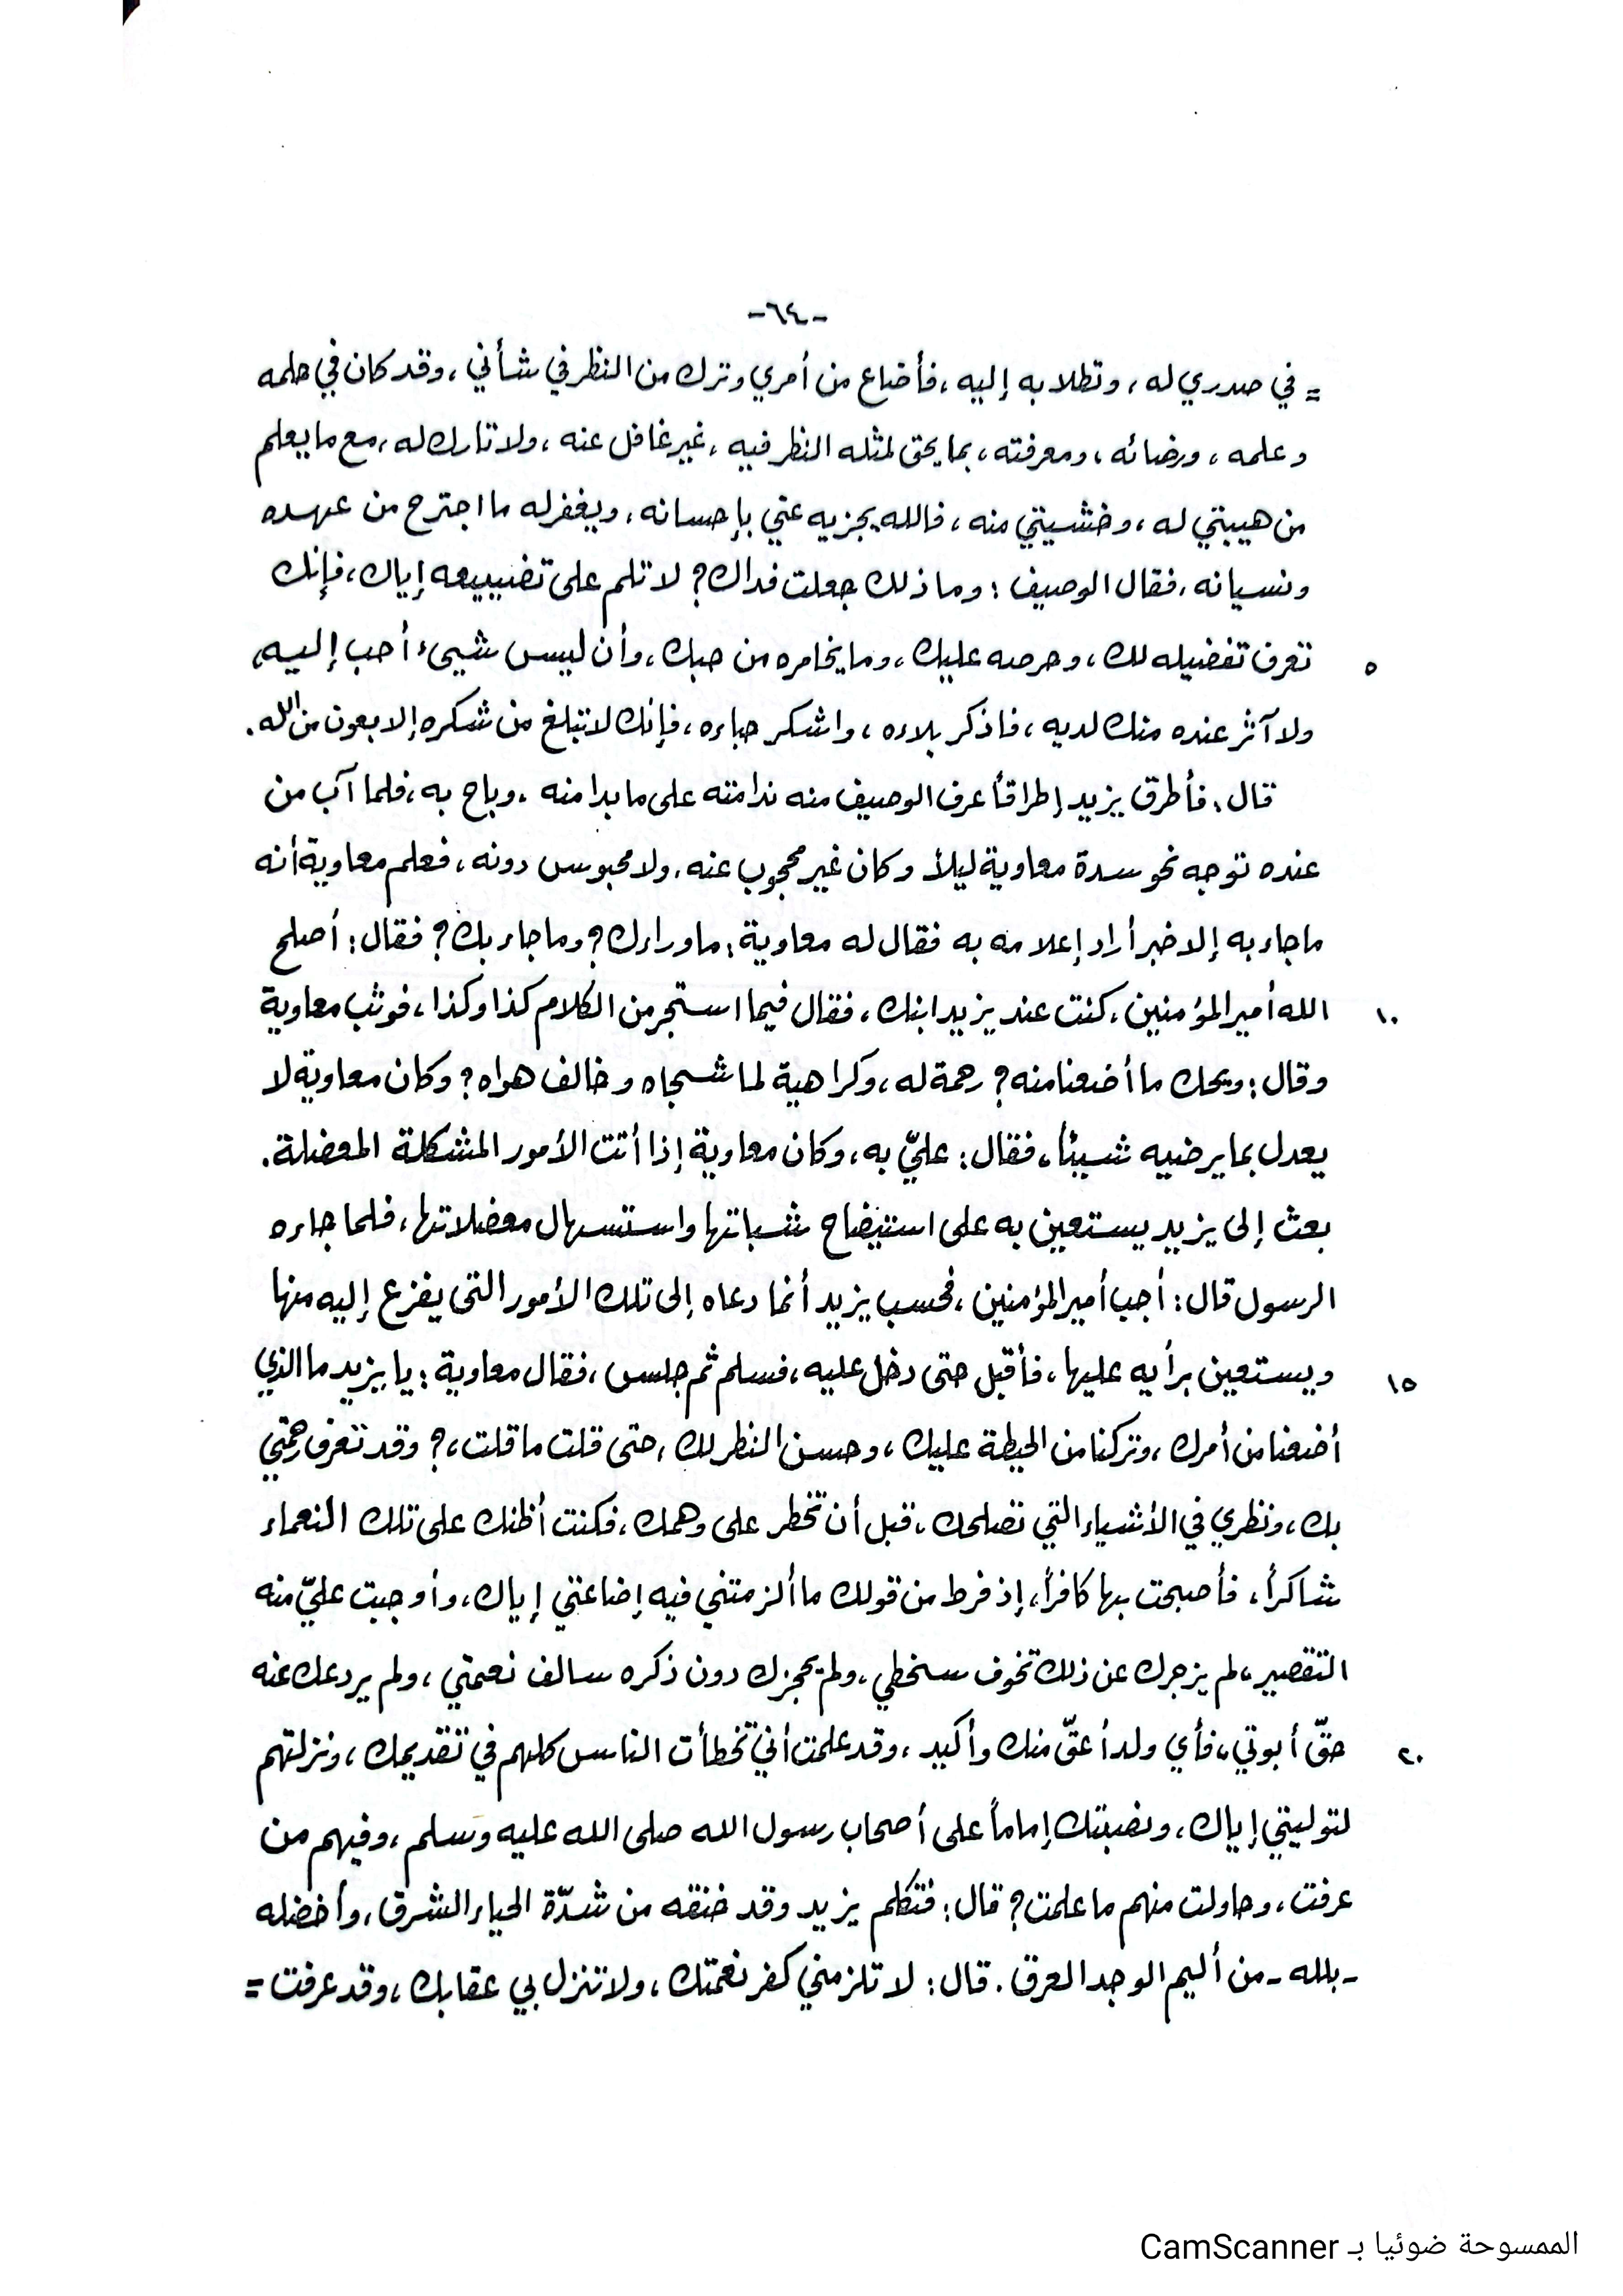 -٦٤-
= في صدري له ، وتطلا به إليه ، فأضاع من أمري وترك من النظر في شأني ، وقد كان في حلمه
وعلمه ، ورضائه ، ومعرفته ، بما يحق لمثله النظر فيه ، غير غافل عنه ، ولا تارك له ، مع ما يعلم
من هيبتي له ، وخشيتي منه ، فالله يجزيه عني بإحسانه ، ويغفر له ما اجترح من عهده
ونسيانه ، فقال الوصيف : وما ذلك جعلت فداك؟ لا تلم على تضييعه إياك ، فإنك
٥ تعرف تفضيله لك ، وحرصه عليك ، وما يخامره من حبك ، وأن ليس شيىء أحب إليه ،
ولا آثر عنده منك لديه ، فاذكر بلاءه ، واشكر حباءه ، فإنك لا تبلغ من شكره إلا بعون من الله .
قال : فأطرق يزيد إطراقاً عرف الوصيف منه ندامته على ما بدا منه ، وباح به ، فلما آب من
عنده توجه نحو سدة معاوية ليلاً وكان غير محجوب عنه ، ولا محبوس دونه ، فعلم معاوية أنه
ما جاء به إلا خبر أراد إعلامه به فقال له معاوية : ما وراءك؟ وما جاء بك؟ فقال : أصلح
١٠ الله أمير المؤمنين ، كنت عند يزيد ابنك ، فقال فيما استجر من الكلام كذا وكذا ، فوثب معاوية
وقال : ويحك ما أضعنا منه؟ رحمة له ، وكراهية لما شجاه وخالف هواه؟ وكان معاوية لا
يعدل بما يرضيه شيئاً ، فقال : عليّ به ، وكان معاوية إذا أتت الأمور المشكلة المعضلة .
بعث إلى يزيد يستعين به على استيضاح شبهاتها واستسهال معضلاتها ، فلما جاءه
الرسول قال : أجب أمير المؤمنين ، فحسب يزيد أنما دعاه إلى تلك الأمور التى يفزع إليه منها
١٥ ويستعين برأيه عليها ، فأقبل حتى دخل عليه ، فسلم ثم جلس ، فقال معاوية : يا يزيد ما الذي
أضعنا من أمرك ، وتركنا من الحيطة عليك ، وحسن النظر لك ، حتى قلت ما قلت ،؟ وقد تعرف رحمتي
بك ، ونظري في الأشياء التي تصلحك ، قبل أن تخطر على وهمك ، فكنت أظنك على تلك النعماء
شاكراً ، فأصبحت بها كافراً ، إذ فرط من قولك ما ألزمتني فيه إضاعتي إياك ، وأوجبت عليّ منه
التقصير ، لم يزجرك عن ذلك تخوف سخطي ، ولم يحجزك دون ذكره سالف نعمتي ، ولم يردعك عنه
٢٠ حقّ أبوتي ، فأي ولد أعقّ منك وأكيد ، وقد علمت أني تخطأت الناس كلهم في تقديمك ، ونزلتهم
لتوليتي إياك ، ونصبتك إماماً على أصحاب رسول الله صلى الله عليه وسلم ، وفيهم من
عرفت ، وحاولت منهم ما علمت؟ قال : فتكلم يزيد وقد خنقه من شدّة الحياء الشرق ، وأخضله
- بلله - من أليم الوجد العرق . قال : لا تلزمني كفر نعمتك ، ولا تنزل بي عقابك ، وقد عرفت =
الممسوحة ضوئيا بـ CamScanner